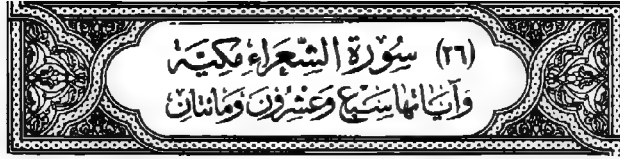 (٢٦) سُورَة الشُّعَرَاءِ مَكِيَّة
وَآيَاتهَا سَبْع وَعِشْرُونَ وَمَائتَانِ